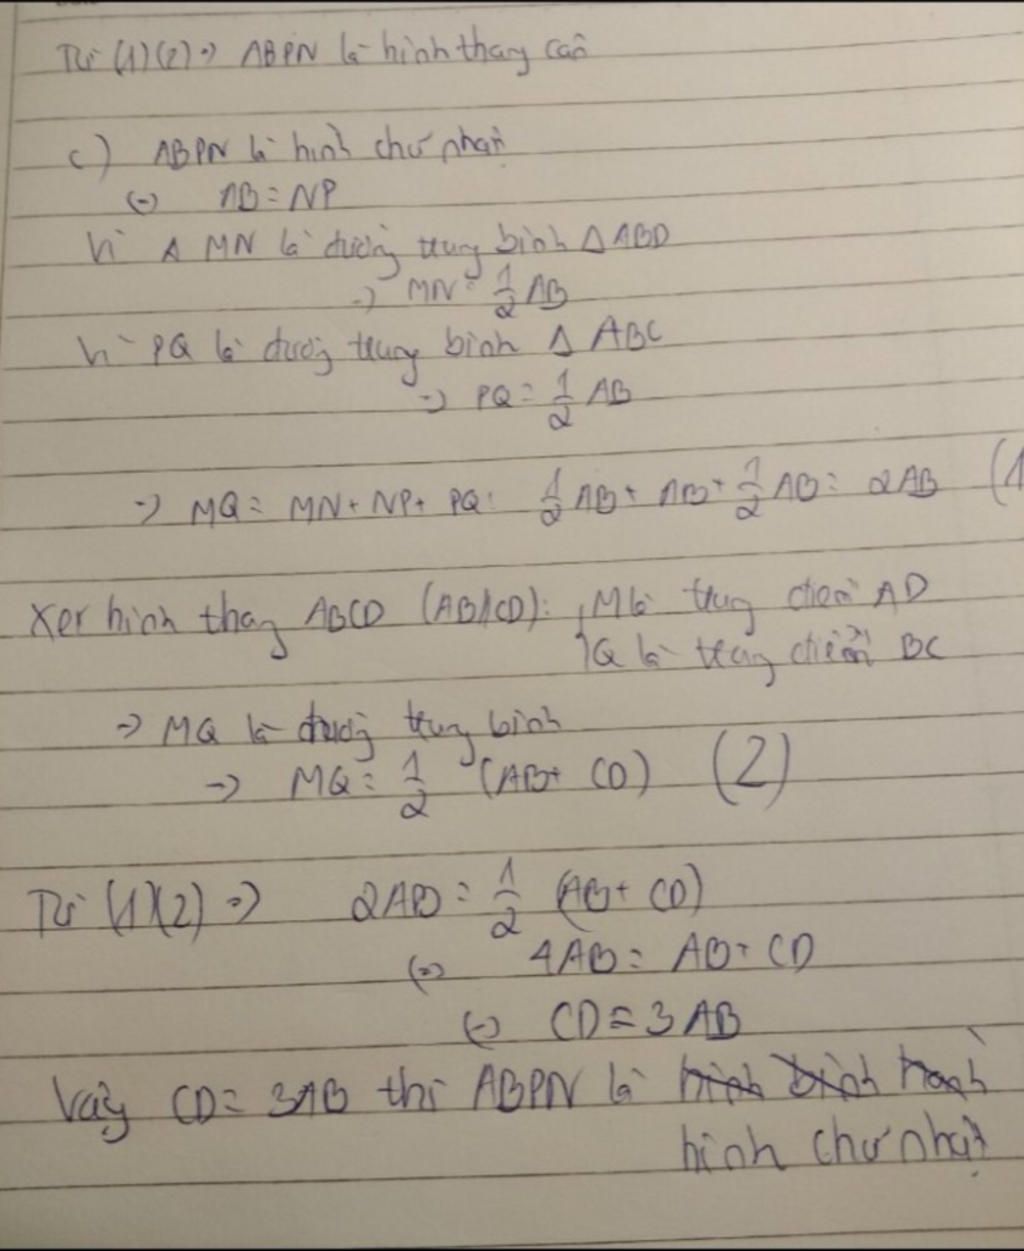 Từ (1)(2) => ABPN là hình thang cân
c) ABPN là hình chữ nhật
(=) AB = NP
Vì Δ MN là đường trung bình Δ ABD
=> MN = 1/2 AB
Vì PQ là đường trung bình Δ ABC
=> PQ = 1/2 AB
=> MQ = MN + NP + PQ = 1/2 AB + AB + 1/2 AB = 2AB (1
Xét hình thang ABCD (AB//CD): M là trung điểm AD
Q là trung điểm BC
=> MQ là đường trung bình
=> MQ = 1/2 (AB + CD) (2)
Từ (1)(2) => 2AB = 1/2 (AB + CD)
(=) 4AB = AB + CD
(=) CD = 3AB
Vậy CD = 3AB thì ABPN là hình bình hành
hình chữ nhật